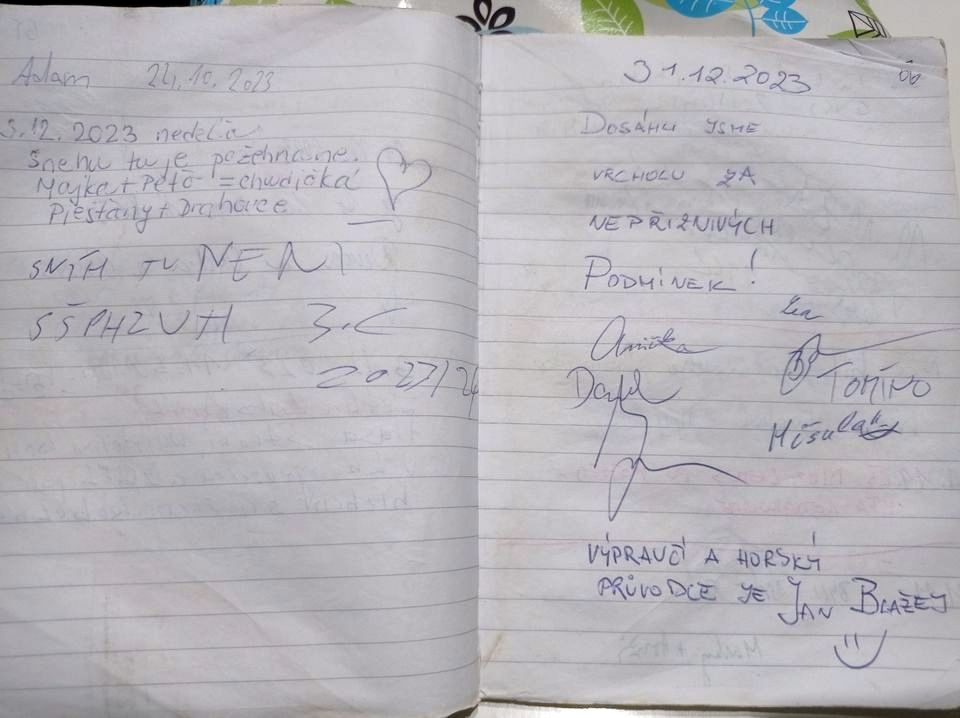 Adam 24.10.2023
3.12.2023 nedeľa
Snehu tu je požehnane.
Majka + Peťo = chudička
Piešťany + Drahovce
SNÍH TU NENÍ
SŠPHZ UH 3.C
2023/24
31.12.2023
DOSÁHLI JSME
VRCHOLU ZA
NEPŘÍZNIVÝCH
PODMÍNEK!
Anička
TOMÍNO
Míšulka
VÝPRAVČÍ A HORSKÝ
PRŮVODCE JE JAN BLAŽEJ